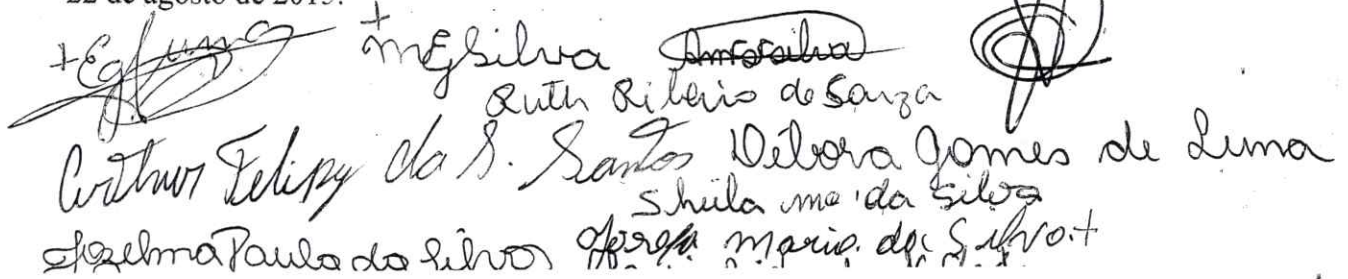 22 de agosto de 2015.
+ MGSilva
Ruth Ribeiro de Souza
Arthur Felipy da S. Santos Débora Gomes de Lima
Sheila ma da Silva
Jozelma Paula da Silva Josefa Maria da Silva +